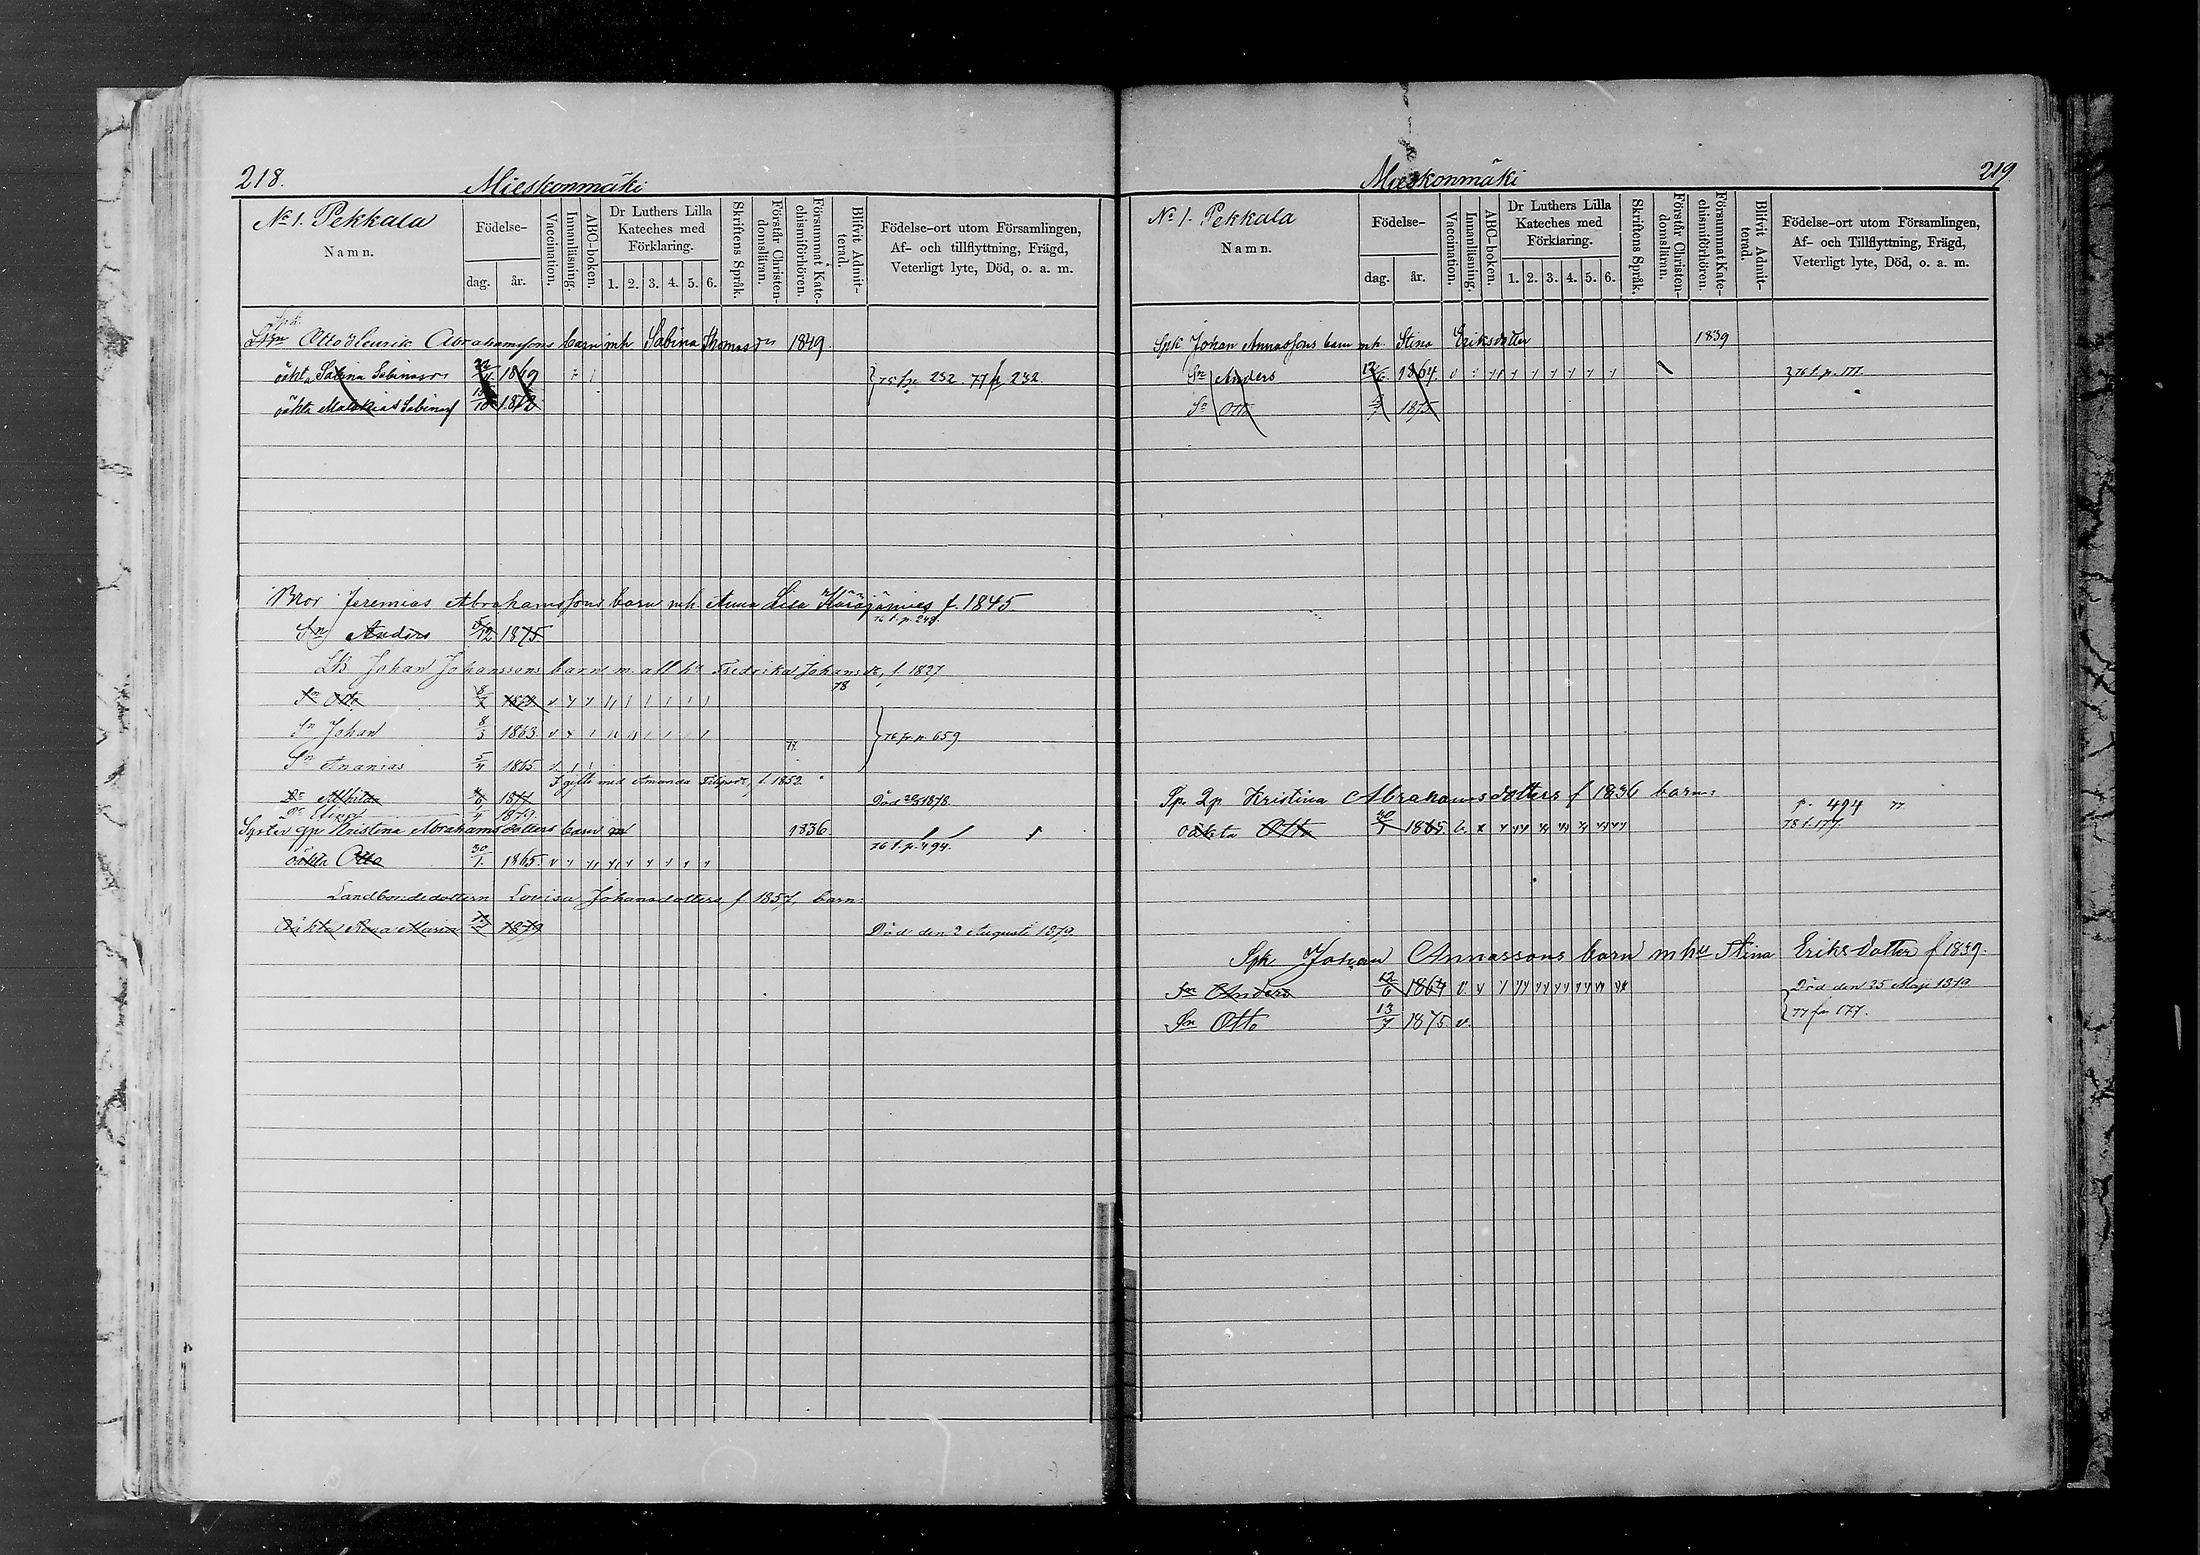 218.
Mieskonmäki
No 1. Pekkala
Namn.
Födelse-
dag.
år.
Vaccination.
Innanläsning.
ABC-boken.
Dr Luthers Lilla
Kateches med
Förklaring.
1. 2. 3. 4. 5. 6.
Skriftens Språk.
Förstår Christen-
domsläran.
Försummat Kate-
chismiförhören.
Blifvit Admit-
terad.
Födelse-ort utom Församlingen,
Af- och tillflyttning, Frägd,
Veterligt lyte, Död, o. a. m.
Otto Henrik Abrahamssons barn mh Sabina Thomasdr 1849.
oäkta Sabina Sabinasdr 1869 75 fr. 232. 77 p. 232.
oäkta Malakias Sabinas
Bror Jeremias Abrahamssons barn mh Anna Lisa f. 1845
76 f. p. 248.
Sn Anders 5/12 1875
Johan Johanssons barn m. afl. h. Fredrika Johansdr, f. 1827
78
Sn Otto 8/7
Sn Johan 8/3 1863. 76 fr. p. 659
77.
Sn Ananias 5/4 1865.
I gifte med Amanda f. 1852.
Dr Mathilda 1877 Död 1878.
Dr 1879.
Syster qp Kristina Abrahamsdotters barn 1836.
76 f. p. 494.
oäkta Otto 30/1. 1865.
Landbondedottern Lovisa Johansdotters f 1857, barn:
Oäkta Maria 1879 Död den 2 Augusti 1879.
219
Mieskonmäki
No 1. Pekkala
Namn.
Födelse-
dag.
år.
Vaccination.
Innanläsning.
ABC-boken.
Dr Luthers Lilla
Kateches med
Förklaring.
1. 2. 3. 4. 5. 6.
Skriftens Språk.
Förstår Christen-
domsläran.
Försummat Kate-
chismiförhören.
Blifvit Admit-
terad.
Födelse-ort utom Församlingen,
Af- och Tillflyttning, Frägd,
Veterligt lyte, Död, o. a. m.
Spk Johan Annassons barn mh. Stina Eriksdotter 1839
Sn Anders 12/6. 1864. 76 f. p. 177.
Sn Otto 1875
Kristina Abrahamsdotters f 1836 barn:
p. 494 77
oäkta Otto 30/1 1865. 78 f. 177.
Spk Johan Annassons barn m hu Stina Eriksdotter f 1839.
Sn Anders 12/6 1864 Död den 25 Maji 1879
Sn Otto 13/7 1875 v. 77 fr. 177.